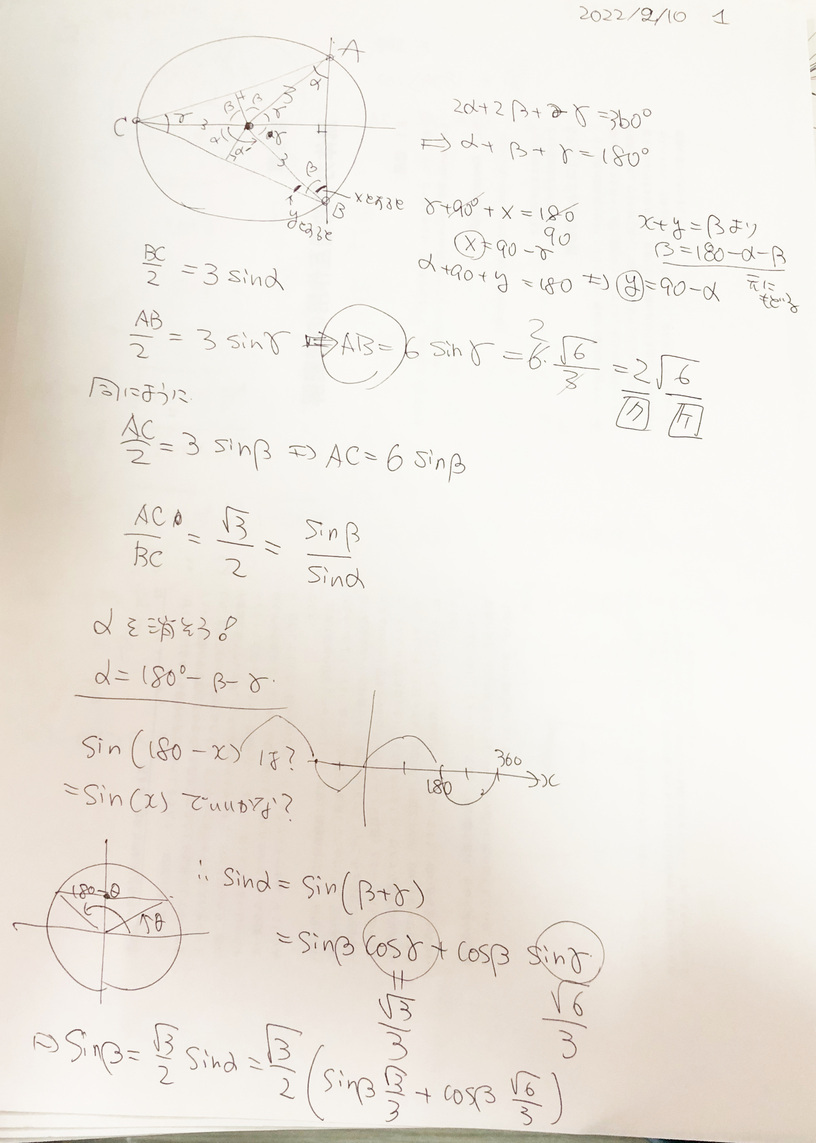 2022/2/10 1
A
α
β β 3 γ
C γ 3 γ
α α 3 β
xとすると
B
yとすると
2α+2β+2γ=360°
⇒ α+β+γ=180°
γ+90°+x=180
90
x=90-γ
α+90+y=180 ⇒ y=90-α
x+y=βより
β=180-α-β
元に
もどる
BC/2 = 3 sinα
AB/2 = 3 sinγ ⇒ AB = 6 sinγ = 6・√6/3 = 2√6
2
同にように
AC/2 = 3 sinβ ⇒ AC = 6 sinβ
AC/BC = √3/2 = sinβ/sinα
αを消そう!
α=180°-β-γ
sin(180-x) は?
=sin(x) でいいかな?
180 360 x
180-θ θ
∴ sinα = sin(β+γ)
= sinβ cosγ + cosβ sinγ
√3/3 √6/3
⇒ sinβ = √3/2 sinα = √3/2 (sinβ √3/3 + cosβ √6/3)